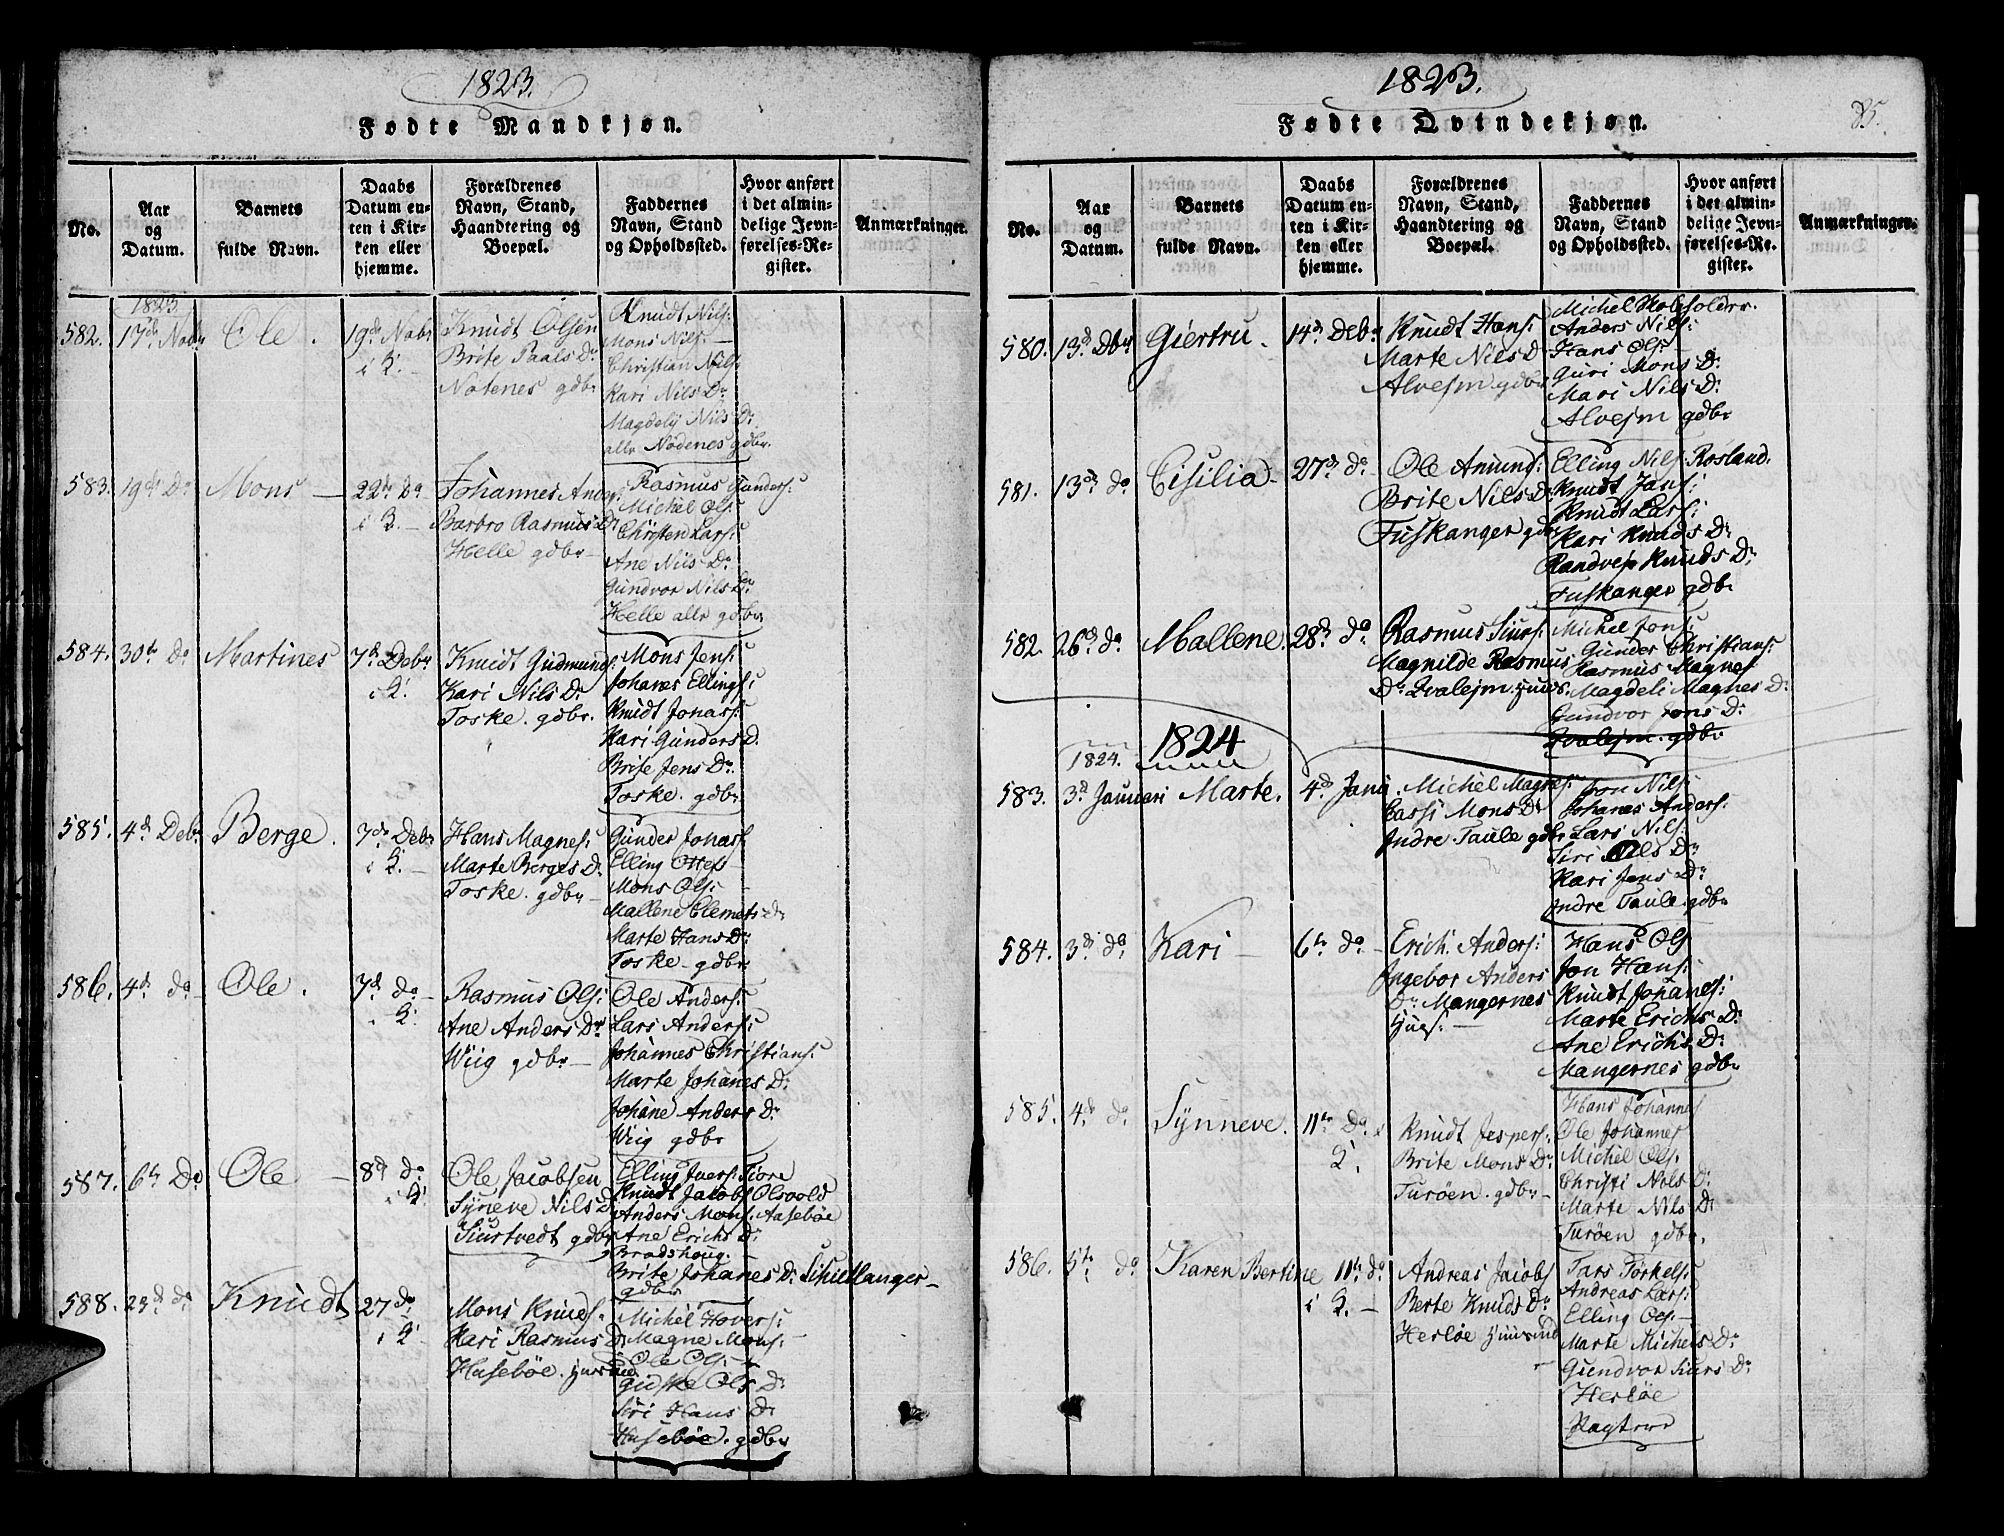 1823.
Fødte Mandkjøn.
No.
Aar og Datum.
Barnets fulde Navn.
Daabs Datum enten i Kirken eller hjemme.
Forældrenes Navn, Stand, Haandtering og Boepæl.
Faddernes Navn, Stand og Opholdssted.
Hvor anført i det almindelige Jevnførelses-Register.
Anmærkninger.
1823
582. 17de Nobr Ole. 19de Nobr i K.
Knudt Olsen
Brite Paals Dr
Notenes gdbr
Knudt Nils:
Mons Nils:
Christian Nils:
Kari Nils Dr
Magdely Nils Dr
alle Nodenes gdbr.
583. 19de Do Mons 22de Do i K.
Johannes Anders:
Barbro Rasmus Dr
Helle gdbr
Rasmus Gunders:
Michel Ols:
Christen Lars:
Ane Nils Dr
Gundvor Nils Dr
Helle alle gdbr
584. 30te Do Martines 7de Debr i K.
Knudt Gudmunds:
Kari Nils Dr
Toske. gdbr.
Mons Jens:
Johanes Ellings:
Knudt Jonas:
Kari Gunders D.
Brite Jens Dr.
Toske. gdbr
585. 4de Debr Berge. 7de Debr i K.
Hans Magnes:
Marte Berges Dr
Toske. gdbr
Gunder Jonas:
Elling Ottes
Mons Ols:
Mallene Clemets Dr
Marte Hans Dr
Toske gdbr
586. 4de do Ole. 7de do i K.
Rasmus Ols:
Ane Anders Dr
Wiig gdbr
Ole Anders:
Lars Anders:
Johannes Christians:
Marte Johanes Dr
Johane Anders Dr
Wiig gdbr
587. 6te Do Ole 8de do i K.
Ole Jacobsen
Syneve Nils D
Siurtvedt gdbr
Elling Ivers: Tiore
Knudt Jacobs Olsvold
Anders Mons: Aasebøe
Ane Erichs Dr
Bradshoug.
Brite Johanes Dr Schietlanger
gdbr
588. 23de do Knudt 27 do i K.
Mons Knuds:
Kari Rasmus Dr
Husebøe.
Michel Hovers:
Magne Mons:
Ole Ols:
Giske Ols Dr
Siri Hans Dr
Husebøe. gdbr
1823.
85.
Fødte Qvindekjøn.
No.
Aar og Datum.
Barnets fulde Navn.
Daabs Datum enten i Kirken eller hjemme.
Forældrenes Navn, Stand, Haandtering og Boepæl.
Faddernes Navn, Stand og Opholdssted.
Hvor anført i det almindelige Jevnførelses-Register.
Anmærkninger.
580. 13de Dbr Giertru. 14de Debr
Knudt Hans:
Marte Nils Dr
Alvejm gdbr
Anders Nils:
Hans Ols:
Guri Mons Dr
Mari Nils Dr
Alvejm gdbr
581. 13de do Cisilia 27de do
Ole Amunds:
Brite Nils Dr
Fuskanger gdbr
Elling Nils: Rosland.
Knudt Jans:
Knudt Lars:
Kari Knuds Dr
Randvej Knuds Dr
Fuskanger gdbr
582. 26de do Mallene. 28de do
Rasmus Siurs:
Magnilde Rasmus
Dr Qvalejm
Michel Jons:
Gunder Christians:
Rasmus Magnes
Magdeli Magnes Dr
Gundvor Jons Dr
Qvalejm gdbr
1824
1824.
583. 3de Januari Marte. 4de Janu.
Michel Magnes:
Cassi Mons Dr
Indre Taule gdbr
Jon Nils:
Johanes Anders:
Lars Nils:
Siri Nils Dr
Kari Jens Dr
Indre Taule gdbr
584. 3de do Kari 6te do
Erich Anders:
Ingebor Anders
Dr Mangernes
Hans Ols
Jon Hans:
Knudt Johanes:
Marte Erichs Dr
Ane Erichs Dr
Mangernes gdbr
585. 4de do Synneve. 11te Do i K.
Knudt Jespers:
Brite Mons Dr
Turøen. gdbr
Hans Johannes
Ole Johannes
Michel Ols:
Christi Nils Dr
Marte Nils Dr
Turøen gdbr.
586. 5te do Karen Bertine 11te do i K.
Andreas Jacobs
Berte Knuds Dr
Herløe
Lars Torkels:
Andreas Lars:
Elling Ols:
Marte Michels Dr
Gundvor Siurs Dr
Herløe